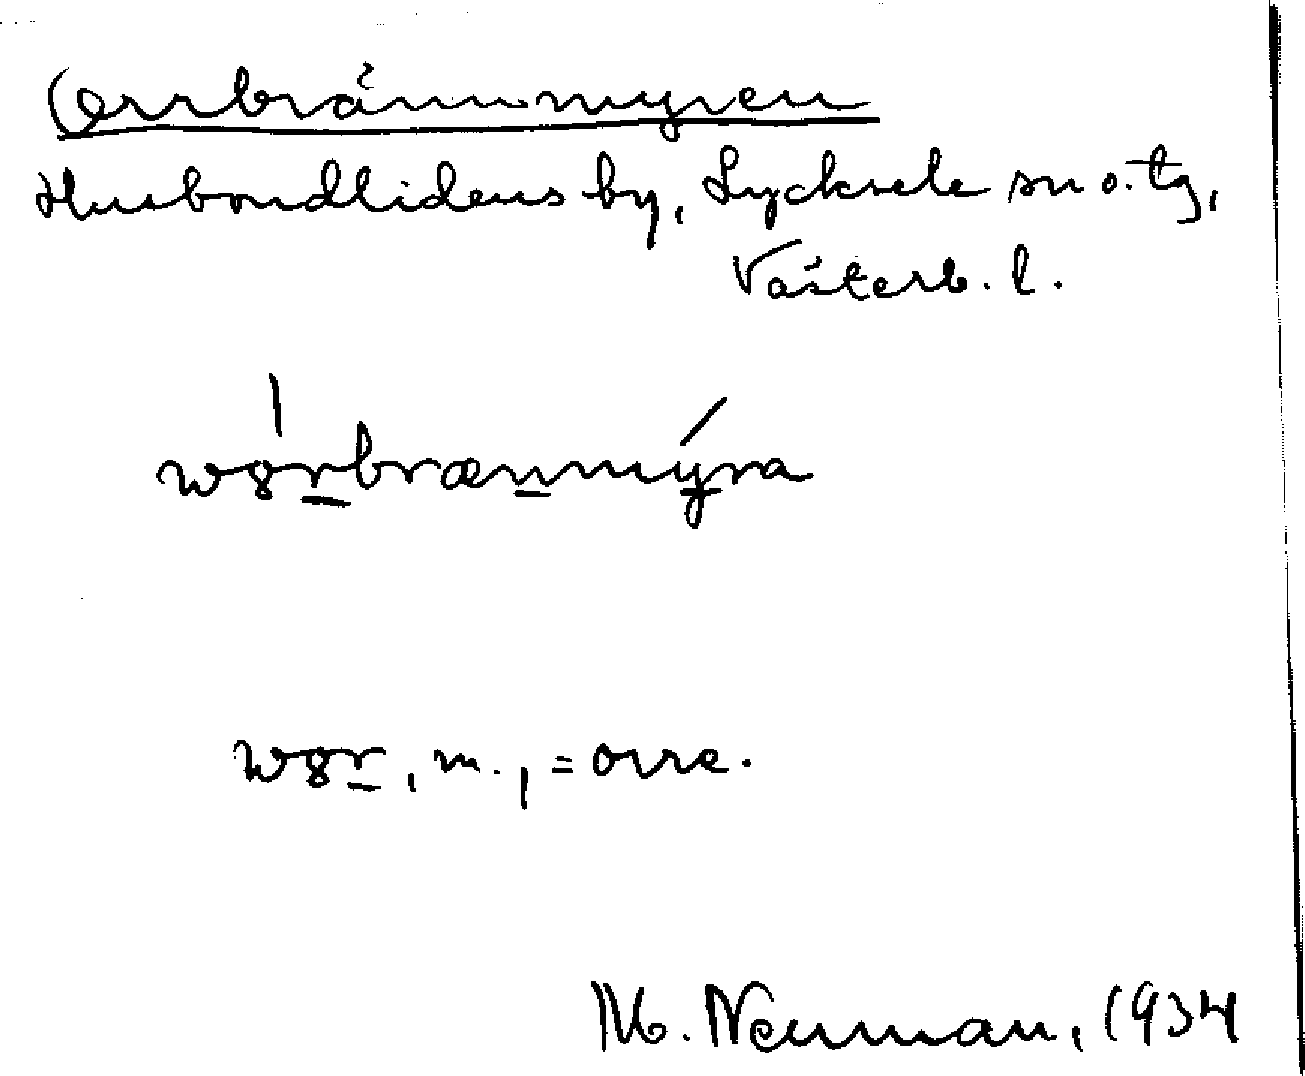 Orrbrännmyren
Husbondlidens by, Lycksele sn o. tg,
Västerb. l.
wȣrbrænmyra
wȣr, m., = orre.
M. Neuman, 1934